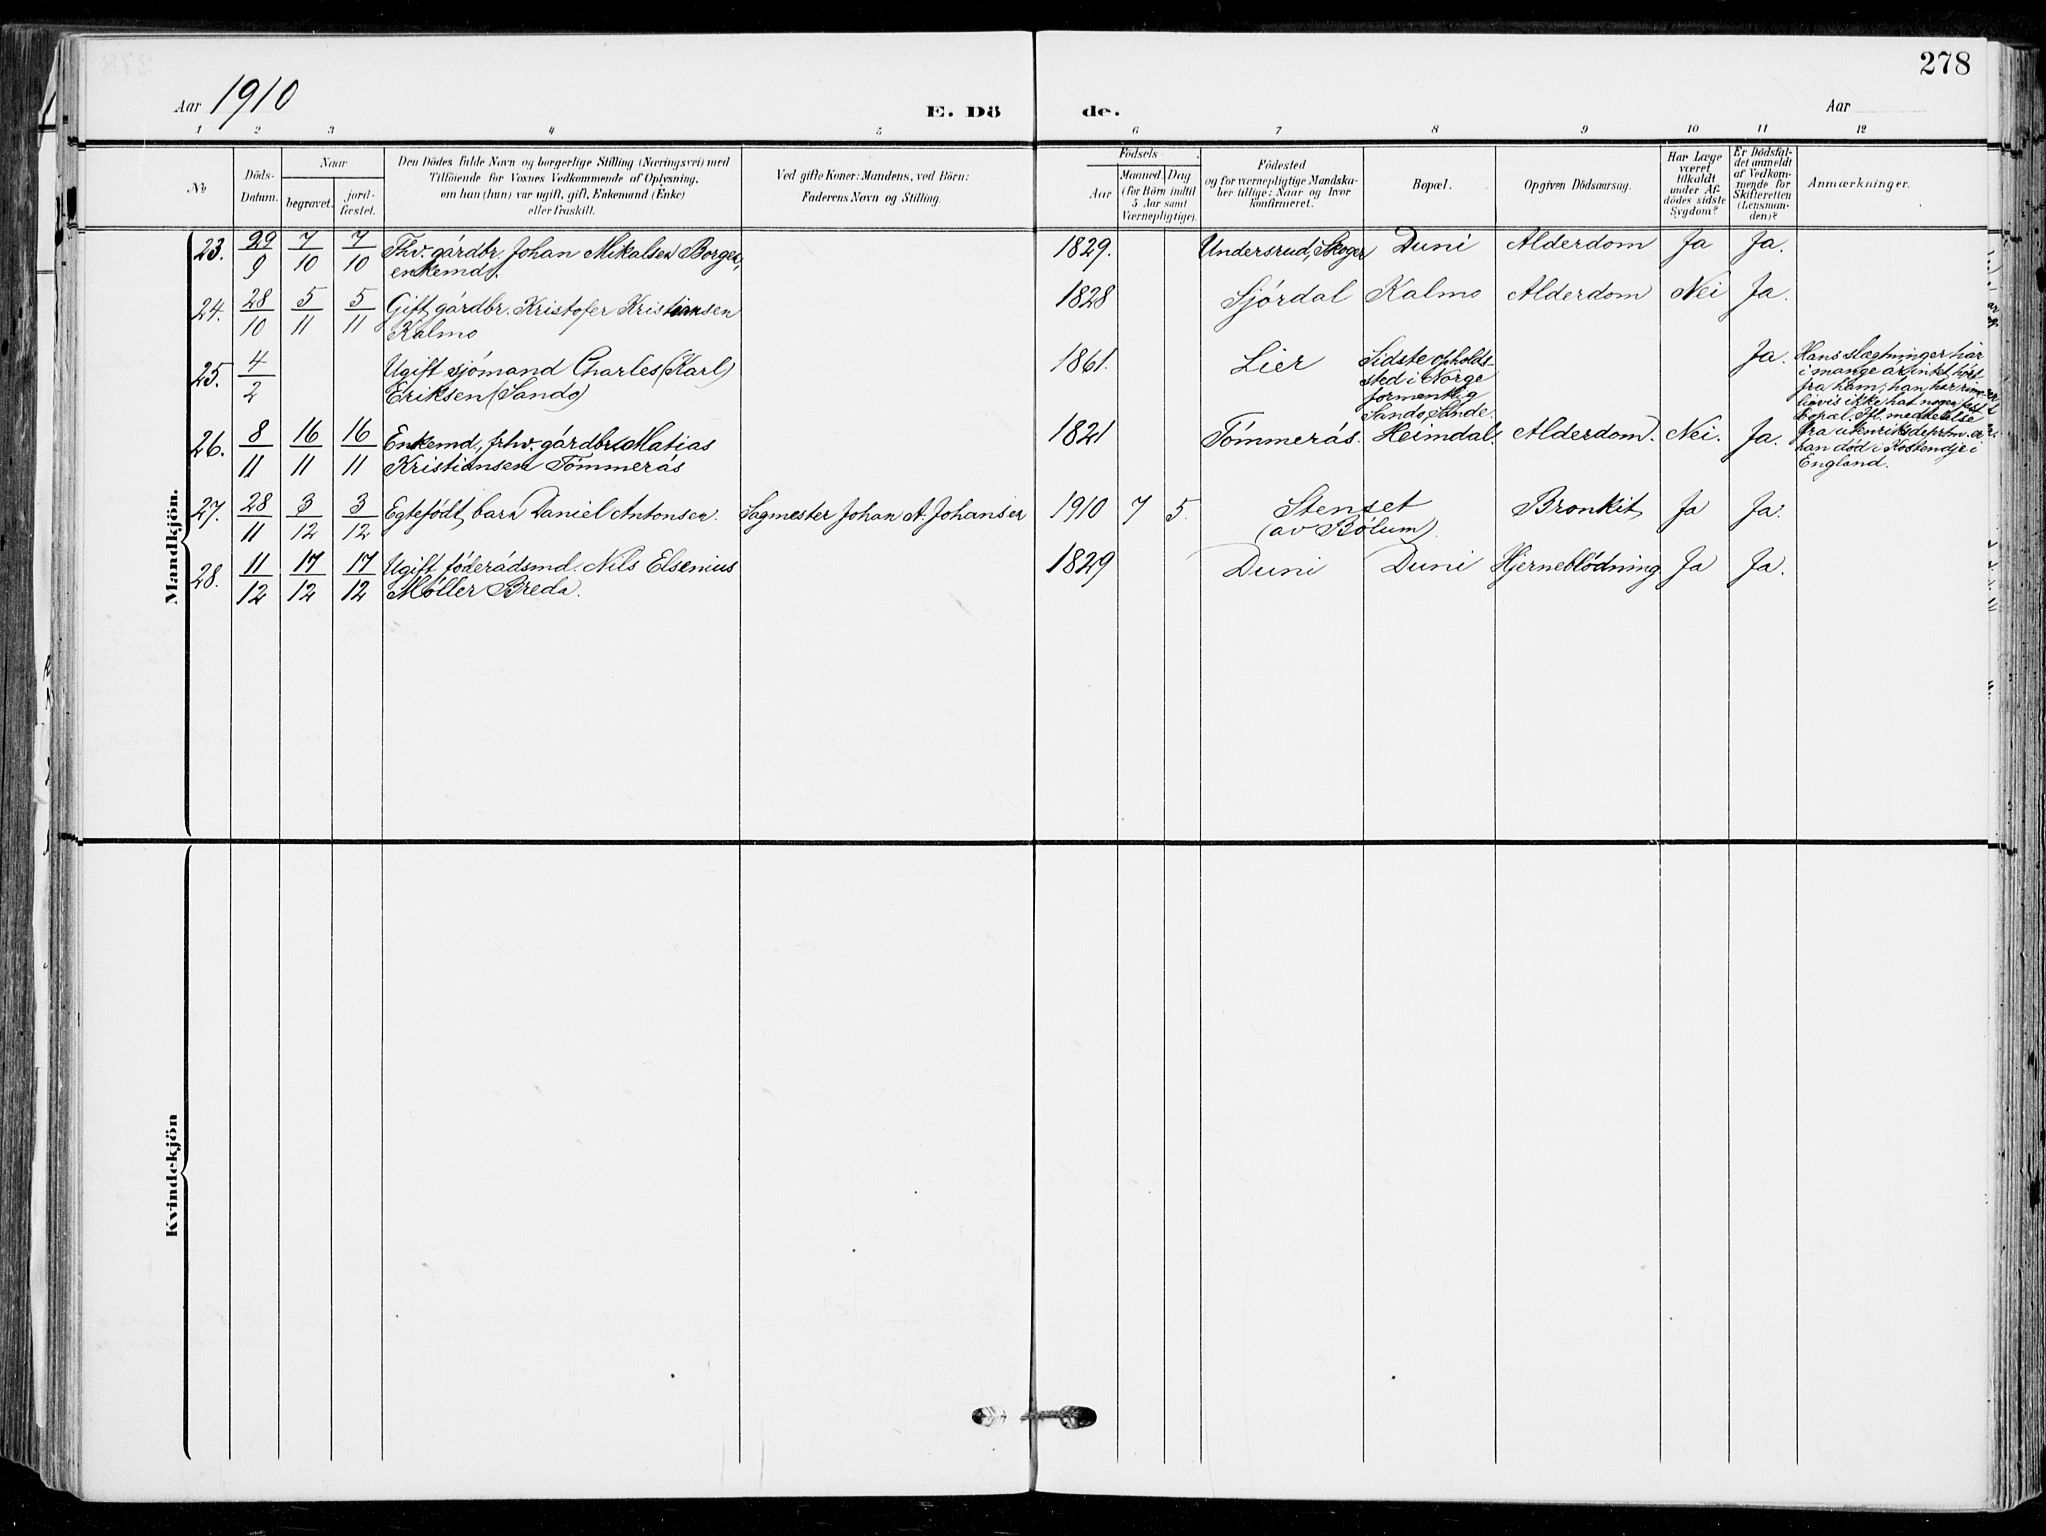 278
Aar 1910
E. Dö de.
Aar
1 2 3 4 5 6 7 8 9 10 11 12
No
Döds-
Datum.
Naar
begravet.
jord-
fæstet.
Den Dödes fulde Navn og borgerlige Stilling (Næringsvei) med
Tilföiende for Voxnes Vedkommende af Oplysning,
om han (hun) var ugift, gift, Enkemand (Enke)
eller fraskilt.
Ved gifte Koner: Mandens, ved Börn:
Faderens Navn og Stilling.
Födsels-
Aar
Maaned. Dag
(for Börn indtil
5 Aar samt
Værnepligtige).
Födested
og for værnepligtige Mandska-
ber tillige: Naar og hvor
konfirmeret.
Bopæl.
Opgiven Dödsaarsag.
Har Læge
været
tilkaldt
under Af-
dödes sidste
Sygdom?
Er Dödsfal-
det anmeldt
af Vedkom-
mende for
Skifteretten
(Lensman-
den)?
Anmærkninger.
Mandkjön.
23. 29/9 7/10 7/10 Fhv. gårdbr. Johan Mikalsen Borge, 1829. Undersrud, Skoger Duni Alderdom Ja Ja.
enkemd.
24. 28/10 5/11 5/11 Gift gårdbr. Kristofer Kristiansen 1828 Sjórdal Kalmo Alderdom Nei Ja.
Kalmo
25. 4/2 Ugift sjómand Charles (Karl) 1861. Lier Ja.
Eriksen (Sando)
Sidste opholds-
sted i Norge
formentlig
Sando, Sande.
Hans slægtninger har
i mange år intet hórt
fra ham; han har
ikke hat nogen fast
bopæl. Ifl. meddelelse
fra utenriksdeprtm. er
han dód i i
England.
26. 8/11 16/11 16/11 Enkemd., frhv. gårdbr. Matias 1821 Tómmerås. Heimdal. Alderdom. Nei. Ja.
Kristiansen Tómmerås
27. 28/11 3/12 3/12 Egtefódt barn Daniel Antonsen. Sagmester Johan A. Johansen 1910 7 5. Stenset Bronkit Ja Ja.
(av Bólum).
28. 11/12 17/12 17/12 Ugift fóderådsmd. Nils Elsenius 1829 Duni Duni Hjerneblódning Ja Ja.
Móller Breda.
Kvindekjön